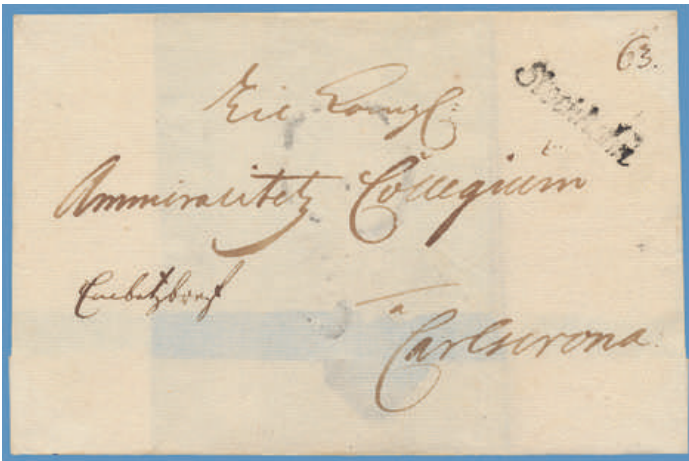 63.
Stockholm
Til Kongl:
Ammiralitetz Collegium
Embetzbref
a
Carlscrona.